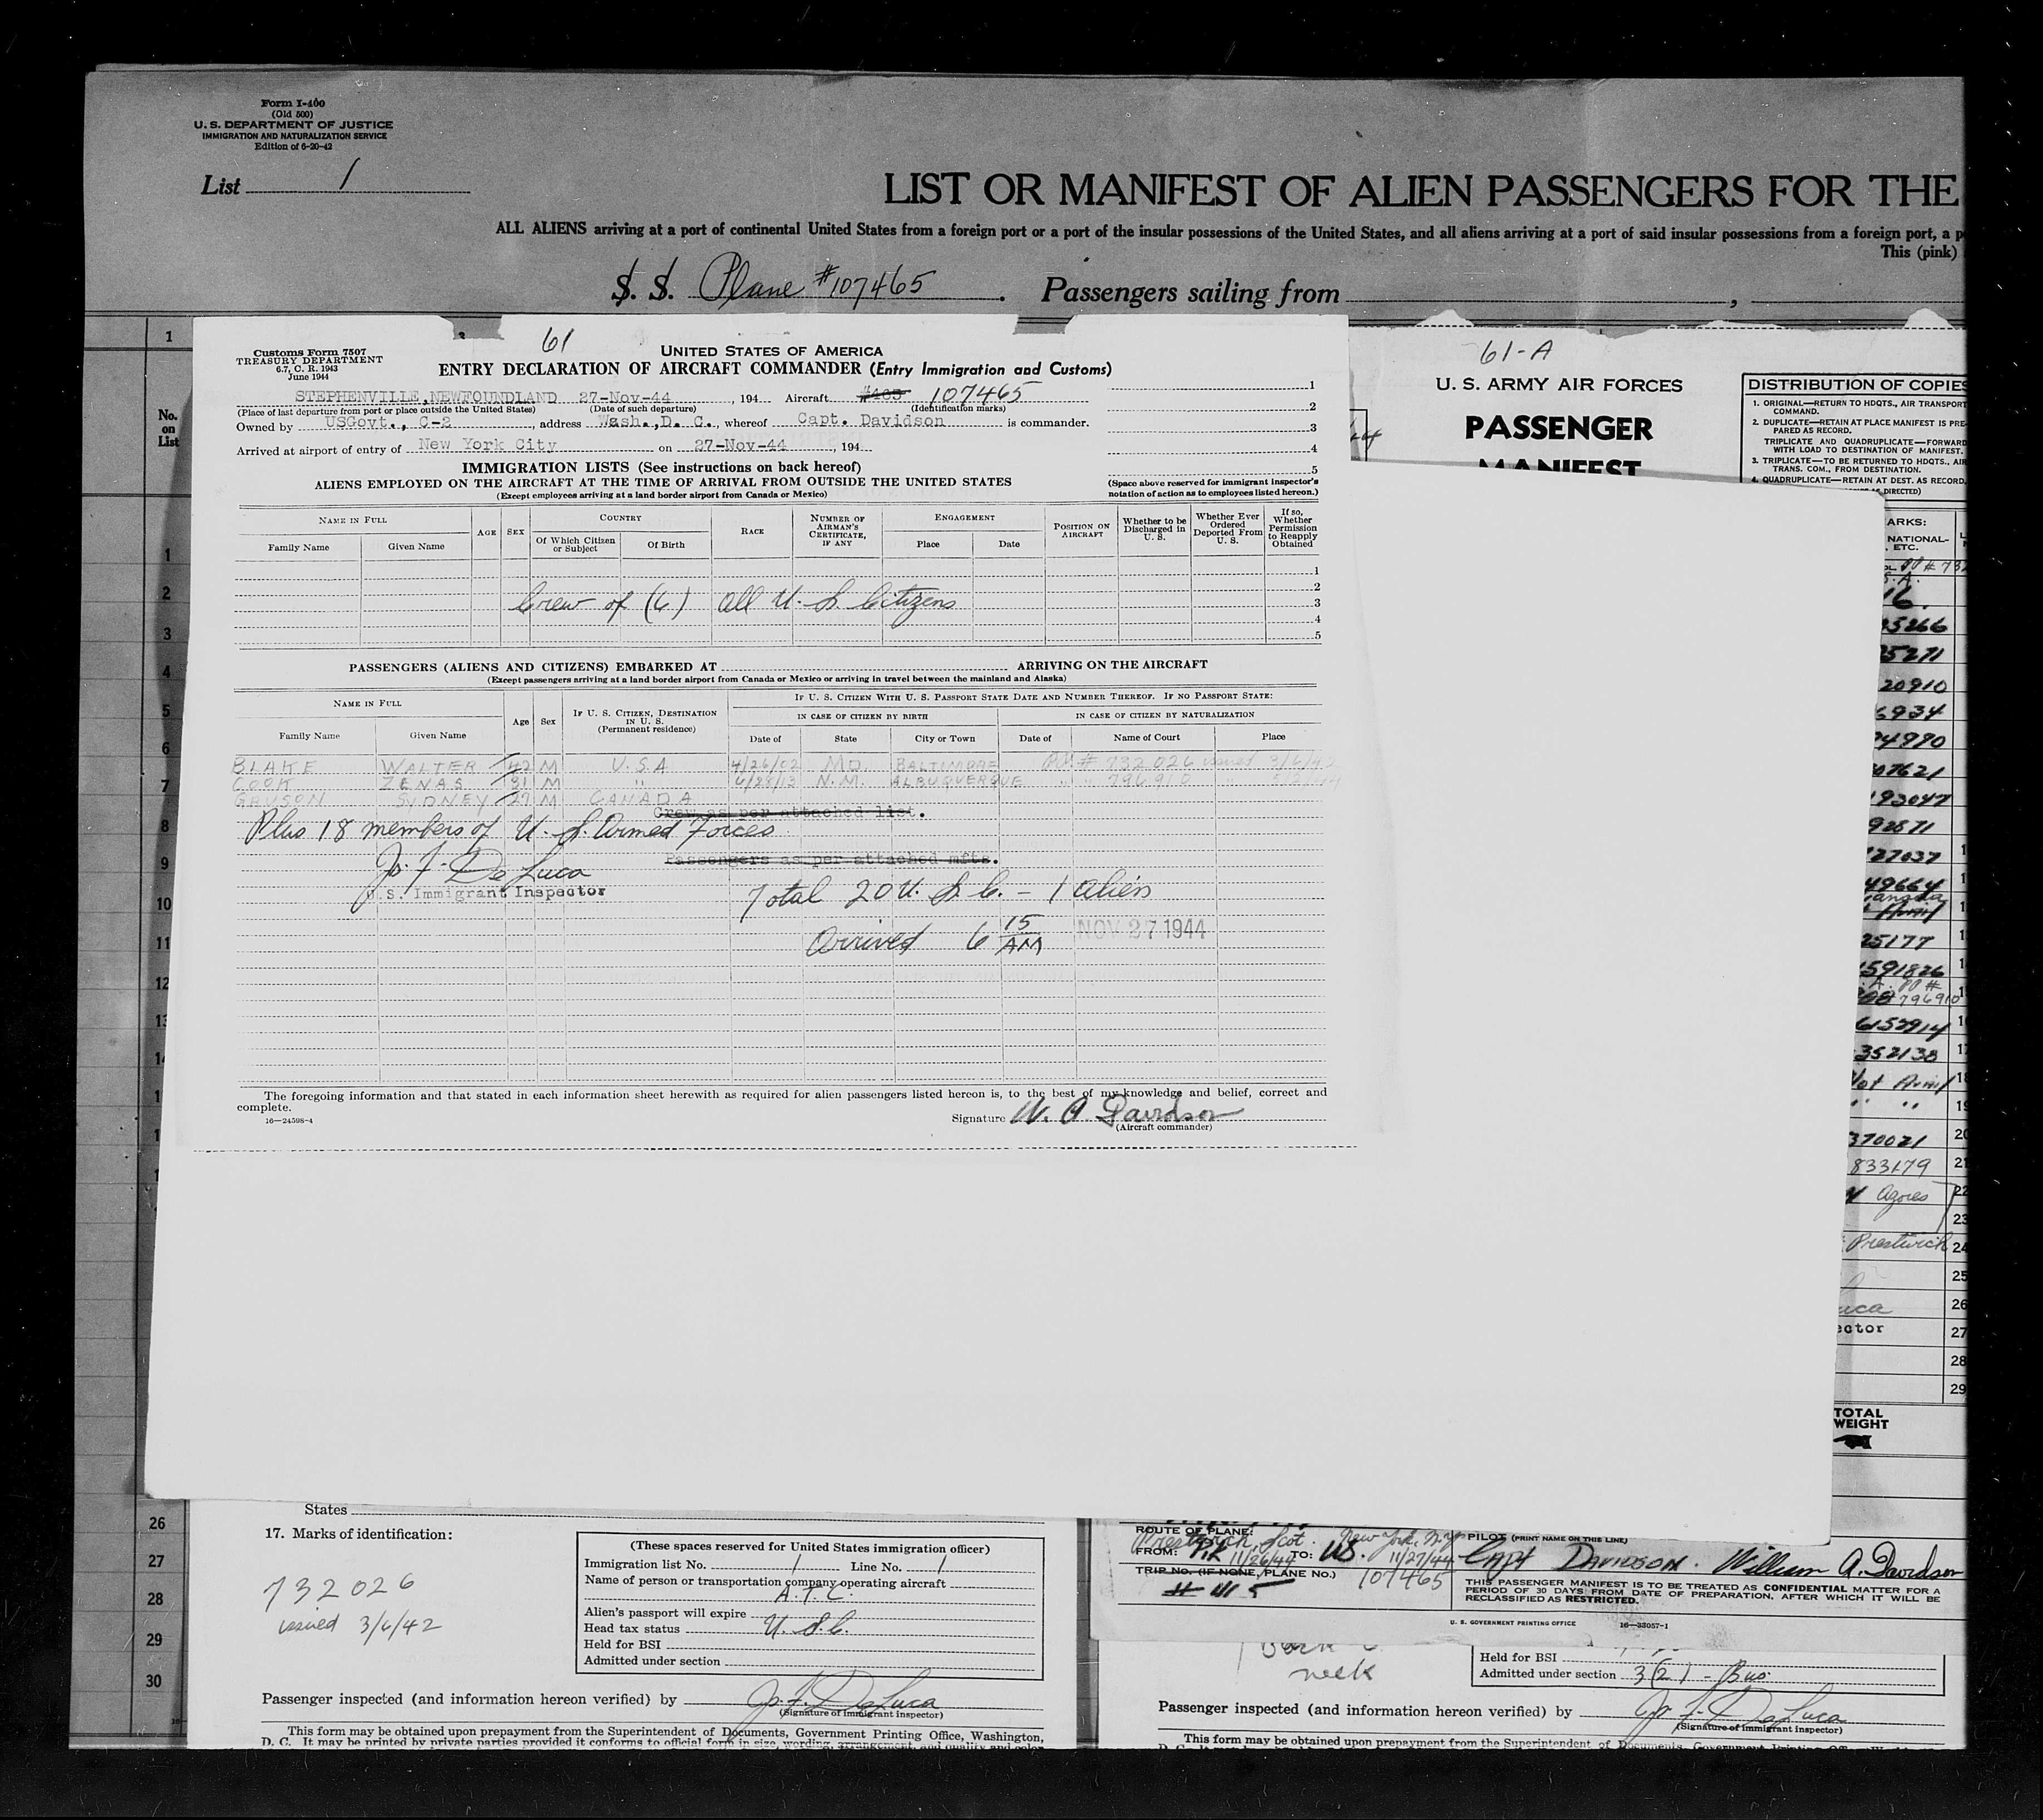 Form I-400
(Old 500)
U. S. DEPARTMENT OF JUSTICE
IMMIGRATION AND NATURALIZATION SERVICE
Edition of 6-20-42
List 1
LIST OR MANIFEST OF ALIEN PASSENGERS FOR THE
ALL ALIENS arriving at a port of continental United States from a foreign port or a port of the insular possessions of the United States, and all aliens arriving at a port of said insular possessions from a foreign port, a p
This (pink)
S. S. Plane #107465 . Passengers sailing from ,
No. on List
61
Customs Form 7507
TREASURY DEPARTMENT
6.7, C. R. 1943
June 1944
UNITED STATES OF AMERICA
ENTRY DECLARATION OF AIRCRAFT COMMANDER (Entry Immigration and Customs)
STEPHENVILLE, NEWFOUNDLAND 27-Nov-44 , 194 Aircraft 107465
(Place of last departure from port or place outside the United States) (Date of such departure) (Identification marks)
Owned by USGovt., C-2 , address Wash.,D. C., whereof Capt. Davidson is commander.
Arrived at airport of entry of New York City on 27-Nov-44 , 194
IMMIGRATION LISTS (See instructions on back hereof)
ALIENS EMPLOYED ON THE AIRCRAFT AT THE TIME OF ARRIVAL FROM OUTSIDE THE UNITED STATES
(Except employees arriving at a land border airport from Canada or Mexico)
(Space above reserved for immigrant inspector's
notation of action as to employees listed hereon.)
NAME IN FULL
Family Name Given Name
AGE SEX
COUNTRY
Of Which Citizen or Subject Of Birth
RACE
NUMBER OF AIRMAN'S CERTIFICATE, IF ANY
ENGAGEMENT
Place Date
POSITION ON AIRCRAFT
Whether to be Discharged in U. S.
Whether Ever Ordered Deported From U. S.
If so, Whether Permission to Reapply Obtained
Crew of (6) all U. S. Citizens
PASSENGERS (ALIENS AND CITIZENS) EMBARKED AT ARRIVING ON THE AIRCRAFT
(Except passengers arriving at a land border airport from Canada or Mexico or arriving in travel between the mainland and Alaska)
NAME IN FULL
Family Name Given Name
Age Sex
IF U. S. CITIZEN, DESTINATION IN U. S.
(Permanent residence)
IF U. S. CITIZEN WITH U. S. PASSPORT STATE DATE AND NUMBER THEREOF. IF NO PASSPORT STATE:
IN CASE OF CITIZEN BY BIRTH IN CASE OF CITIZEN BY NATURALIZATION
Date of State City or Town Date of Name of Court Place
BLAKE WALTER 42 M U.S.A 4/26/02 MD. BALTIMORE PP# 732026 issued 3/6/42
COOK ZENAS 31 M " 6/28/13 N.M. ALBUQUERQUE " " 796910 " 5/2/44
SYDNEY 27 M CANADA
Crew as per attached list.
Plus 18 members of U. S. Armed Forces
Passengers as per attached mfts.
Jo. F. De Luca
U.S. Immigrant Inspector
Total 20 U. S. C. - 1 alien
Arrived 6 15 AM NOV 27 1944
The foregoing information and that stated in each information sheet herewith as required for alien passengers listed hereon is, to the best of my knowledge and belief, correct and
complete.
16—24598-4
Signature W. A. Davidson
(Aircraft commander)
61-A
U. S. ARMY AIR FORCES
PASSENGER
MANIFEST
DISTRIBUTION OF COPIES
1. ORIGINAL—RETURN TO HDQTS., AIR TRANSPORT
COMMAND.
2. DUPLICATE—RETAIN AT PLACE MANIFEST IS PRE-
PARED AS RECORD.
TRIPLICATE AND QUADRUPLICATE—FORWARD
WITH LOAD TO DESTINATION OF MANIFEST.
3. TRIPLICATE—TO BE RETURNED TO HDQTS., AIR
TRANS. COM., FROM DESTINATION.
4. QUADRUPLICATE—RETAIN AT DEST. AS RECORD.
DIRECTED)
ARKS:
NATIONAL-
ETC.
20910
6934
93047
27037
49664
25177
591826
796910
352138
370021
833179
Azores
Prestwick
TOTAL
WEIGHT
States
17. Marks of identification:
732026
issued 3/6/42
(These spaces reserved for United States immigration officer)
Immigration list No. 1 Line No. 1
Name of person or transportation company operating aircraft
A.T.C.
Alien's passport will expire
Head tax status U. S. C.
Held for BSI
Admitted under section
Passenger inspected (and information hereon verified) by Jo. F. De Luca
(Signature of immigrant inspector)
This form may be obtained upon prepayment from the Superintendent of Documents, Government Printing Office, Washington,
D. C. It may be printed by private parties provided it conforms to official form in size, wording, arrangement, and quality and color
ROUTE OF PLANE:
Prestwick, Scot. New York, N.Y.
FROM: 11/26/44 TO: US. 11/27/44
TRIP NO. (IF NONE, PLANE NO.) 107465
PILOT (PRINT NAME ON THIS LINE)
CAPT DAVIDSON. William A. Davidson
THIS PASSENGER MANIFEST IS TO BE TREATED AS CONFIDENTIAL MATTER FOR A
PERIOD OF 30 DAYS FROM DATE OF PREPARATION, AFTER WHICH IT WILL BE
RECLASSIFIED AS RESTRICTED.
U. S. GOVERNMENT PRINTING OFFICE 16—33057-1
neck
Held for BSI
Admitted under section 3(2) - Bus.
Passenger inspected (and information hereon verified) by Jo. F. De Luca
(Signature of immigrant inspector)
This form may be obtained upon prepayment from the Superintendent of Documents, Government Printing